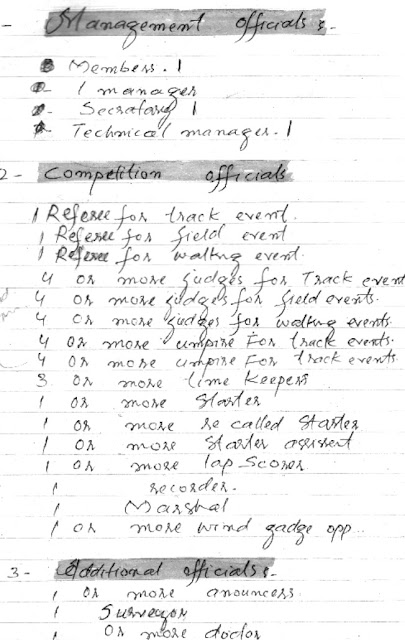 - Management officials :-
Members. 1
1 manager
Secratary 1
Technical manager. 1
2- Competition officials
1 Referee for track event.
1 Referee for field event
1 Referee for walking event.
4 or more judges for Track event
4 or more judges for field events.
4 or more judges for walking events.
4 or more umpire For track events.
4 or more umpire For track events.
3 or more time keepers
1 or more Starter
1 or more re called Starter
1 or more Starter assisent
1 or more lap Scorer
1 recorder.
1 Marshal
1 or more wind gadge opp..
3- Additional officials :-
1 or more anouncess
1 Surveyor
1 Or more doctor